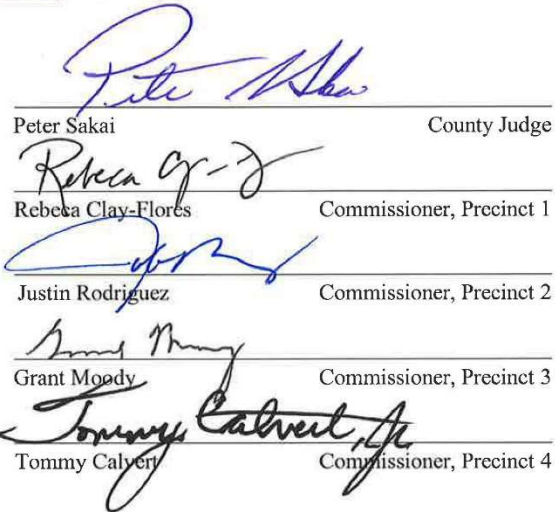 Pete Sakai
Peter Sakai County Judge
Rebeca
Rebeca Clay-Flores Commissioner, Precinct 1
Justin Rodriguez Commissioner, Precinct 2
Grant Moody Commissioner, Precinct 3
Tommy Calvert, Jr.
Tommy Calvert Commissioner, Precinct 4